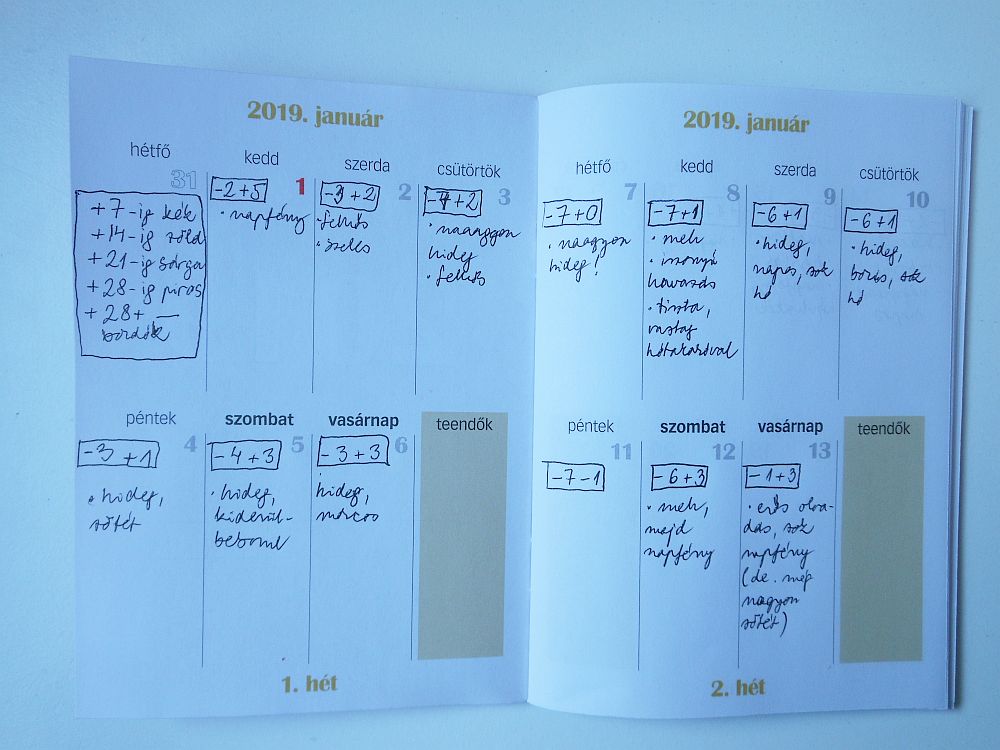 2019. január
hétfő
31
+7-ig kék
+14-ig zöld
+21-ig sárga
+28-ig piros
+28+ —
bordók
kedd
1
-2+5
• napfény
szerda
2
-3+2
• felhős
• szeles
csütörtök
3
-7+2
• naaaggyon
hideg
• felhős
péntek
4
-3+1
• hideg,
sötét
szombat
5
-4+3
• hideg,
kiderül-
beborul
vasárnap
6
-3+3
hideg,
teendők
1. hét
2019. január
hétfő
7
-7+0
• naagyon
hideg!
kedd
8
-7+1
• meh
• iszonyú
havazás
• tiszta,
vastag
hótakaróval
szerda
9
-6+1
• hideg,
napos, sok
hó
csütörtök
10
-6+1
• hideg,
borús, sok
hó
péntek
11
-7-1
szombat
12
-6+3
• meh,
majd
napfény
vasárnap
13
-1+3
• erős olva-
dás, sok
napfény
(de. még
nagyon
sötét)
teendők
2. hét